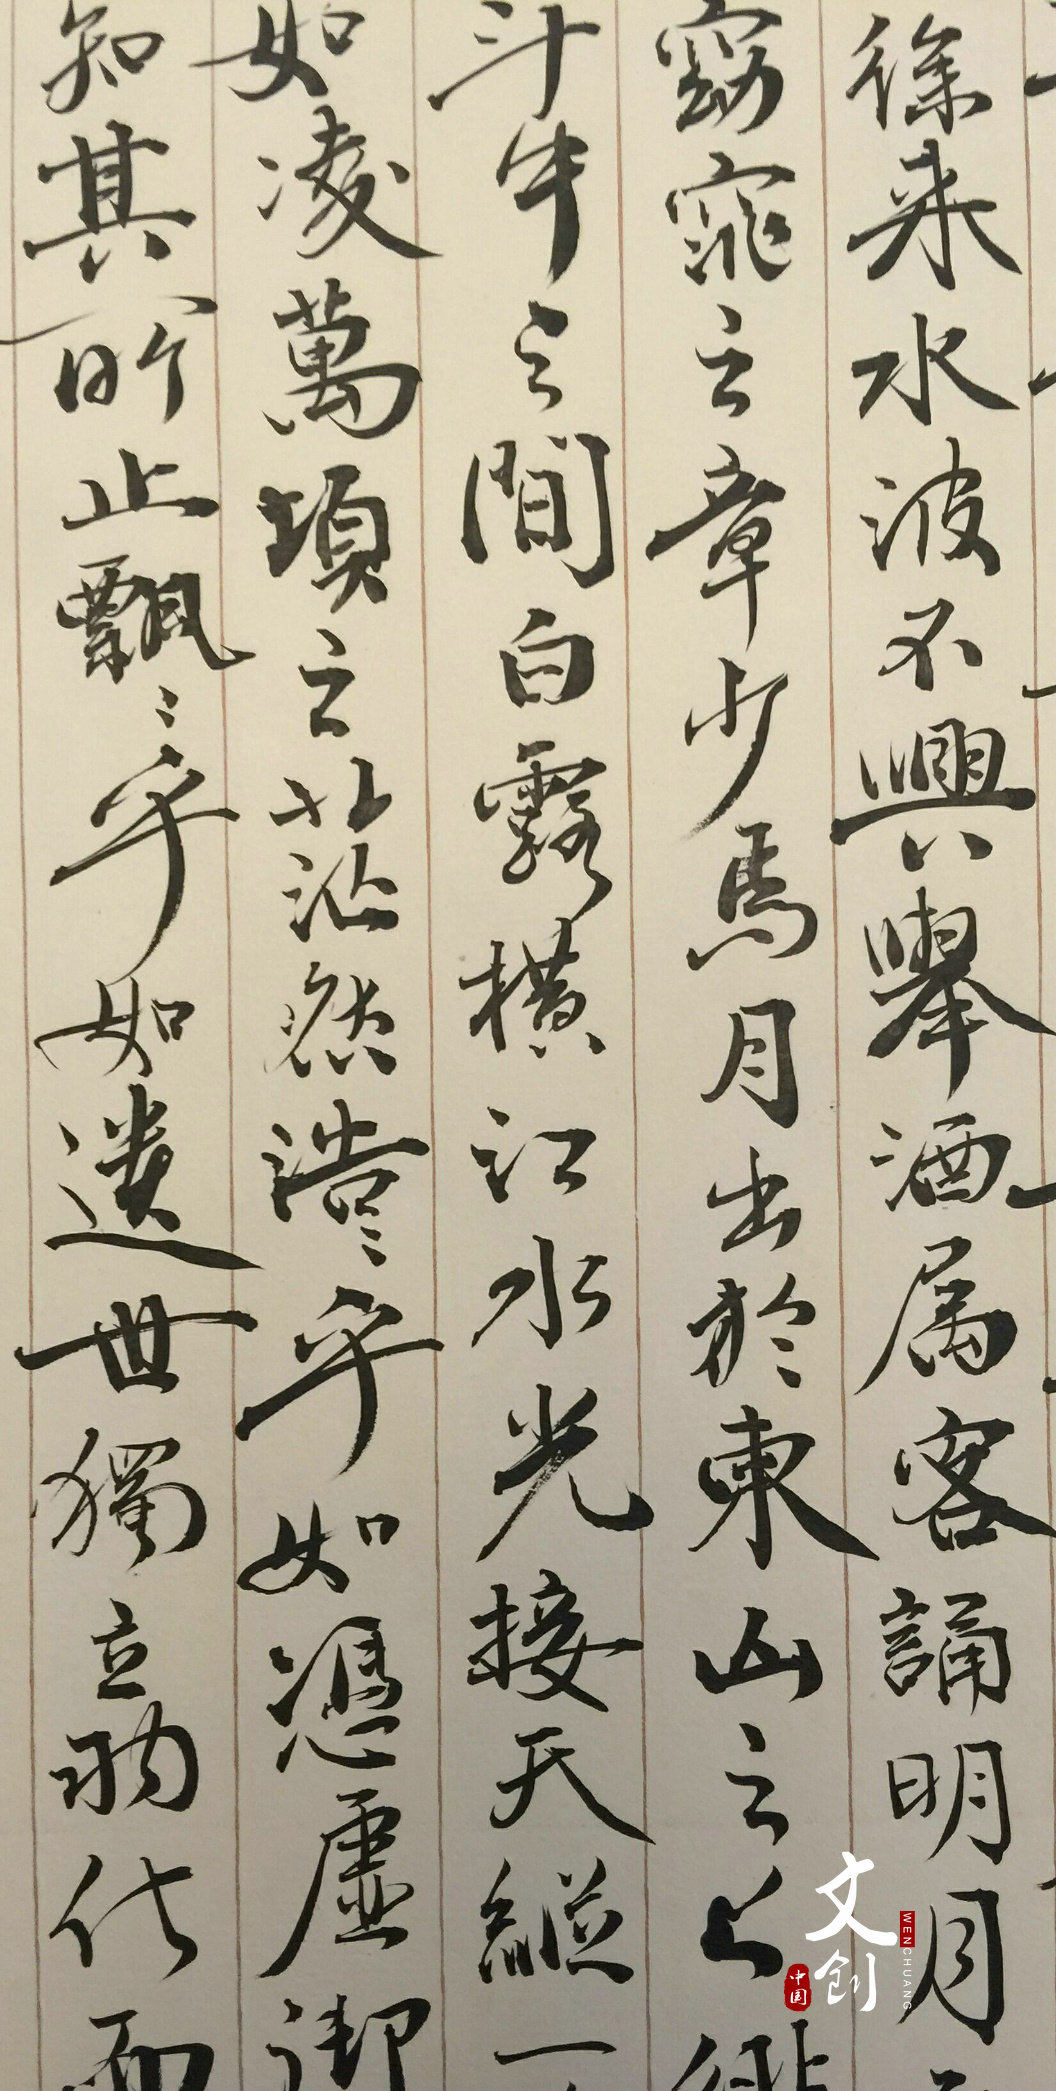 徐来水波不興舉酒属客誦明月
窈窕之章少焉月出於東山之上徘
斗牛之間白露横江水光接天縱一
如凌萬頃之茫然浩〻乎如憑虛御
知其所止飄〻乎如遺世獨立羽化而
文创
WENCHUANG
中国